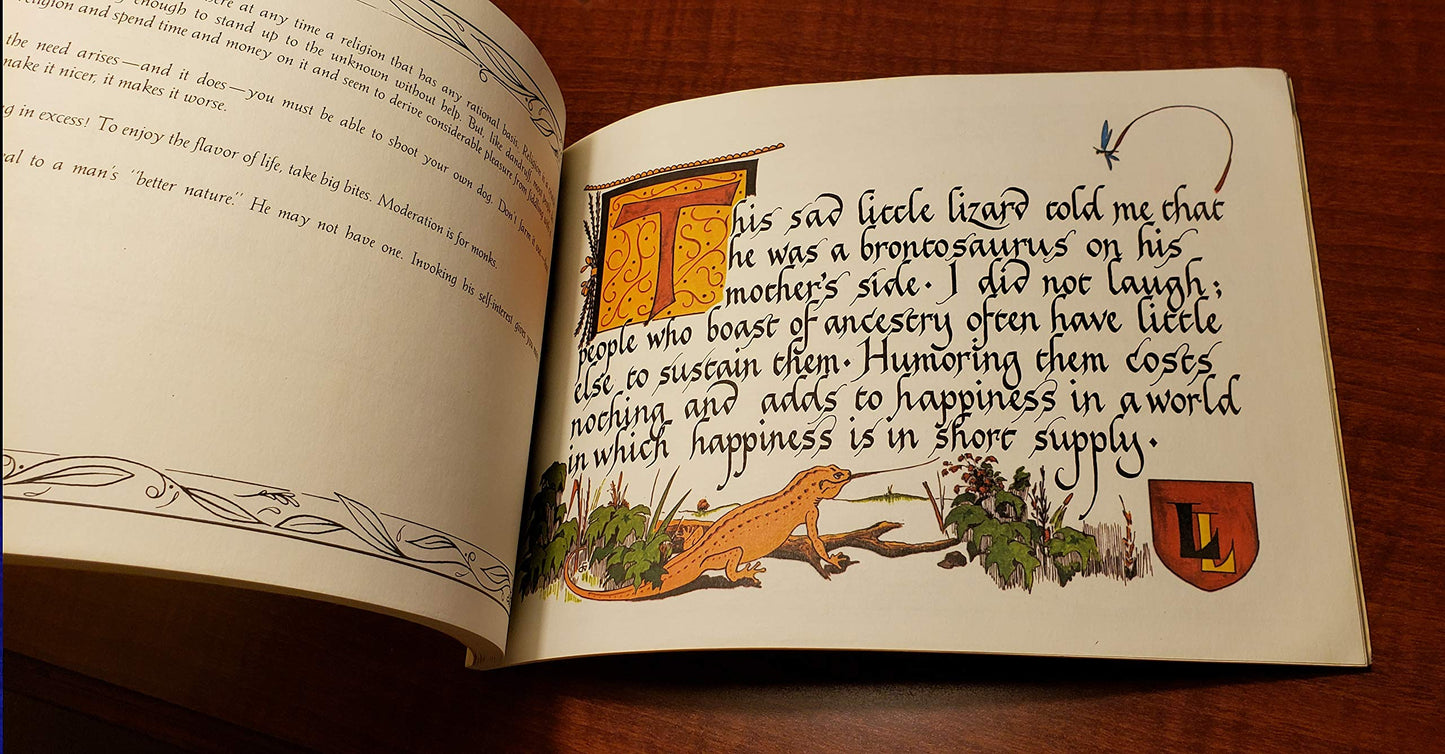 ere at any time a religion that has any rational basis. Religion is a
enough to stand up to the unknown without help. But, like dandruff, most people
religion and spend time and money on it and seem to derive considerable pleasure from fiddling with
the need arises—and it does—you must be able to shoot your own dog. Don't farm it out—
make it nicer, it makes it worse.
g in excess! To enjoy the flavor of life, take big bites. Moderation is for monks.
al to a man's "better nature." He may not have one. Invoking his self-interest gives you
This sad little lizard told me that
he was a brontosaurus on his
mother's side. I did not laugh;
people who boast of ancestry often have little
else to sustain them. Humoring them costs
nothing and adds to happiness in a world
in which happiness is in short supply.
LL